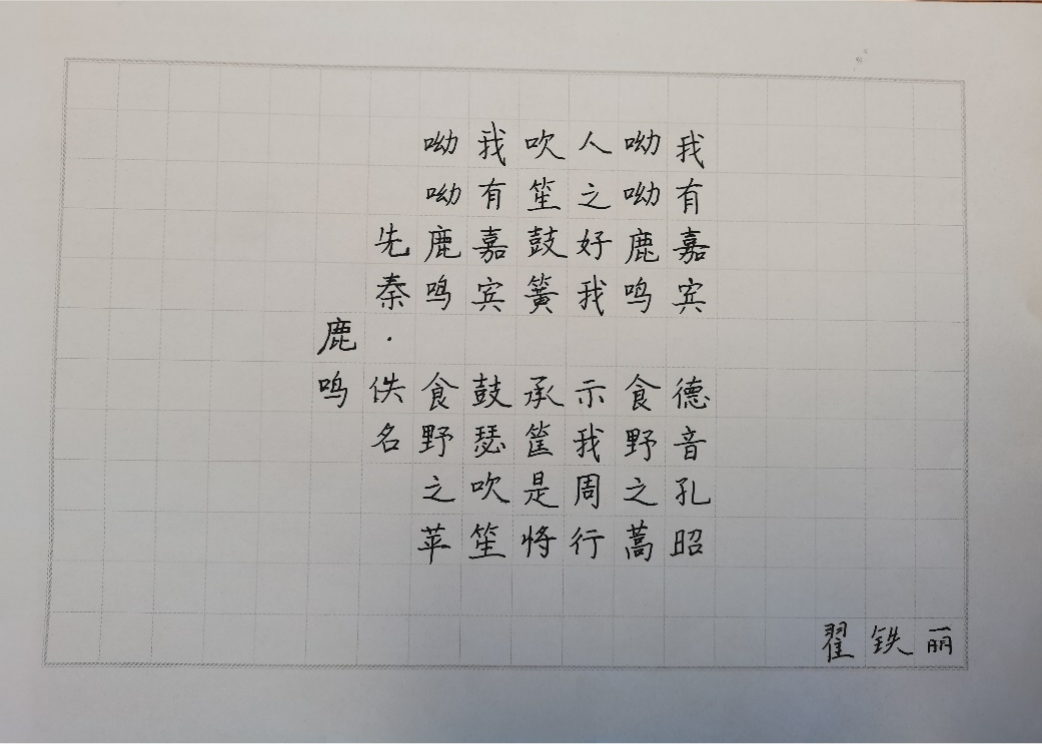 鹿鸣
先秦·佚名
呦呦鹿鸣 食野之苹
我有嘉宾 鼓瑟吹笙
吹笙鼓簧 承筐是将
人之好我 示我周行
呦呦鹿鸣 食野之蒿
我有嘉宾 德音孔昭
翟铁丽